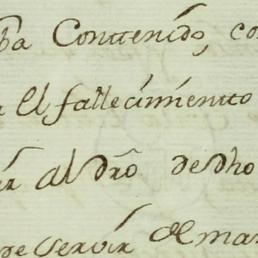 Contenido, co
el fallecimiento
al dro de dho
de servir de ma